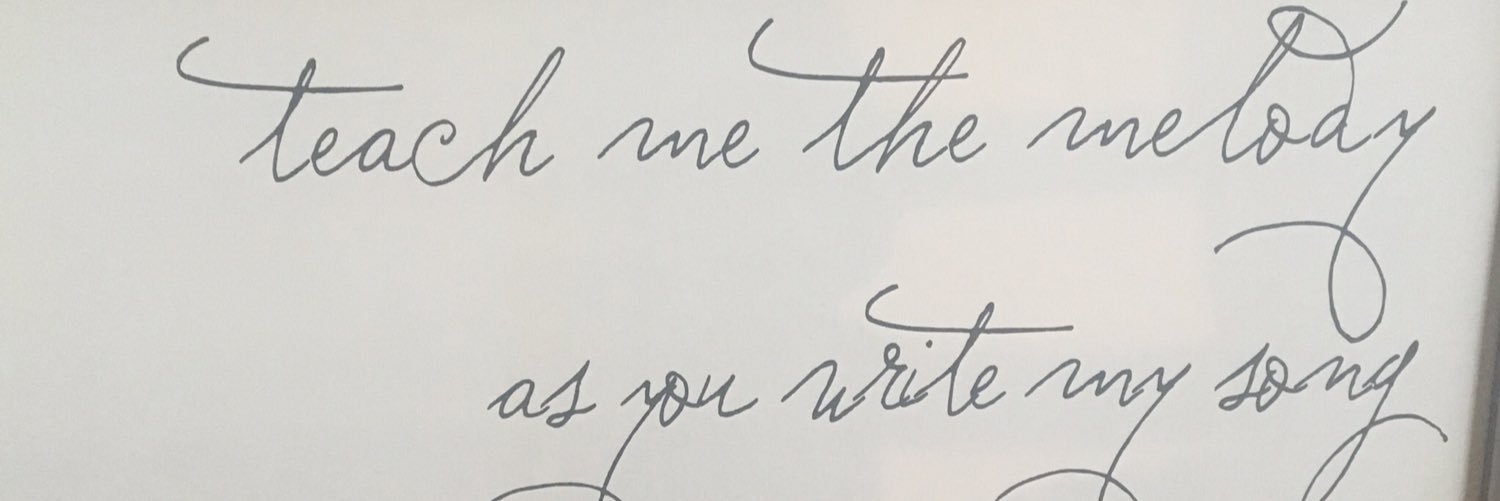 teach me the melody
as you write my song